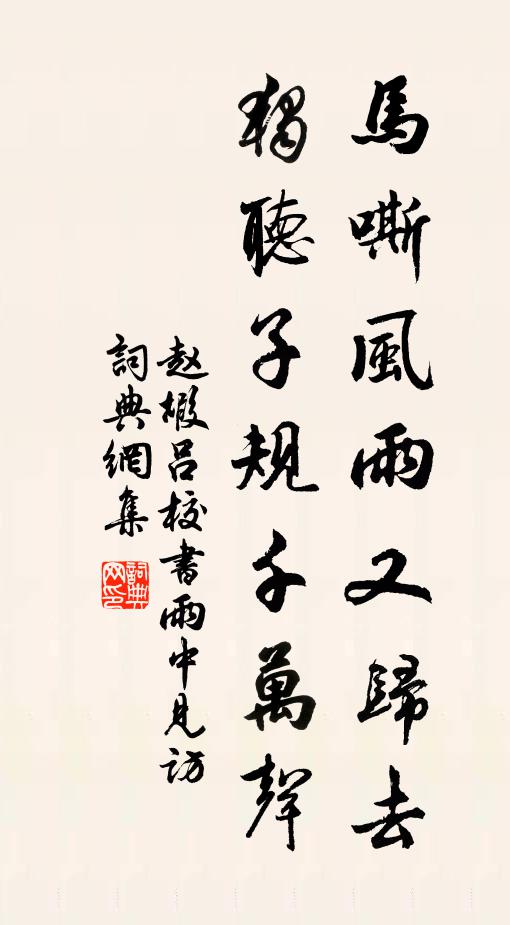 馬嘶風雨又歸去
獨聽子規千萬聲
赵嘏吕校書雨中見訪
詞典網集
詞典网印